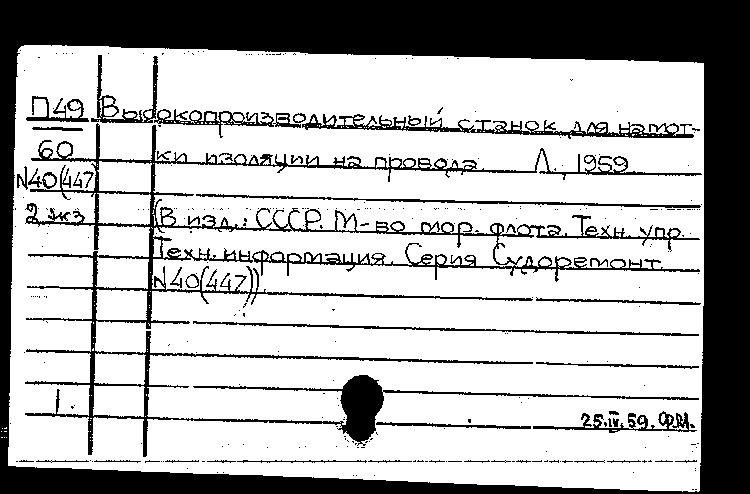 П49 Высокопроизводительный станок для намот-
60 ки изоляции на провода. Л., 1959
N40(447)
2 экз (В изд.: СССР. М-во мор. флота. Техн. упр.
Техн. информация. Серия Судоремонт.
N40(447))
1.
25.IV.59.